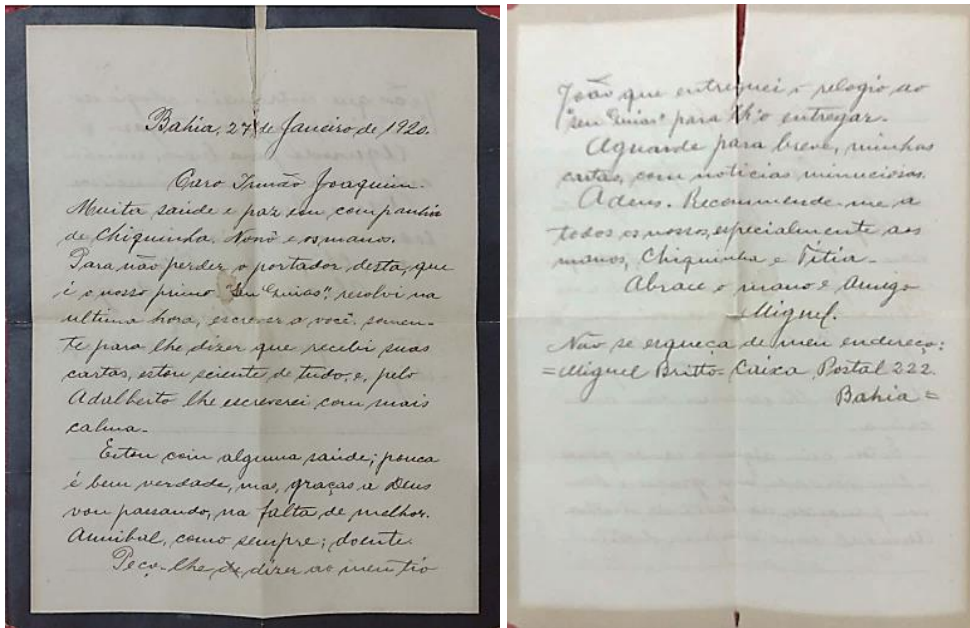 Bahia, 27 de Janeiro de 1920.
Caro Irmão Joaquim.
Muita saúde e paz em companhia
de Chiquinha. Nonô e os manos.
Para não perder o portador desta, que
é o nosso primo "Seu Enias", resolvi na
ultima hora, escrever a você. somen-
te para lhe dizer que recebi suas
cartas, estou sciente de tudo, e, pelo
Adalberto lhe escreverei com mais
calma.
Estou com alguma saúde; pouca
é bem verdade, mas, graças a Deus
vou passando, na falta de melhor.
Annibal, como sempre; doente.
Peço-lhe dizer ao meu tio
João que entreguei o relogio ao
"seu Enias" para lh'o entregar.
Aguarde para breve, minhas
cartas, com noticias minuciosas.
Adeus. Recommende-me a
todos os nossos, especialmente aos
manos, Chiquinha e Titia.
Abrace o mano e Amigo
Miguel.
Não se esqueça de meu endereço:
=Miguel Britto= Caixa Postal 222.
Bahia =